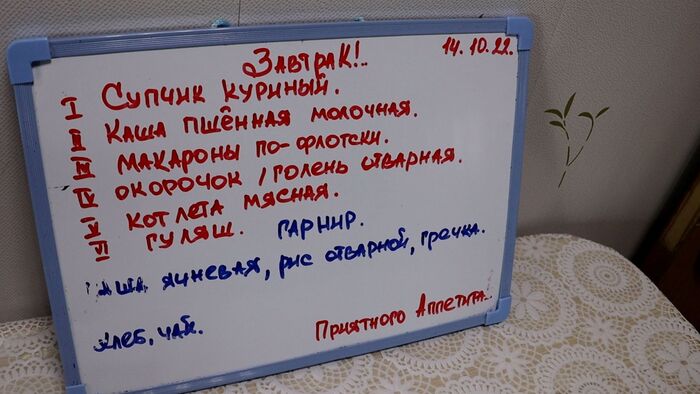 Завтрак!.. 14.10.22.
I Супчик куриный.
II Каша пшённая молочная.
III Макароны по-флотски.
IV Окорочок / голень отварная.
V Котлета мясная.
VI Гуляш. Гарнир.
Каша ячневая, рис отварной, гречка.
Хлеб, чай.
Приятного Аппетита.